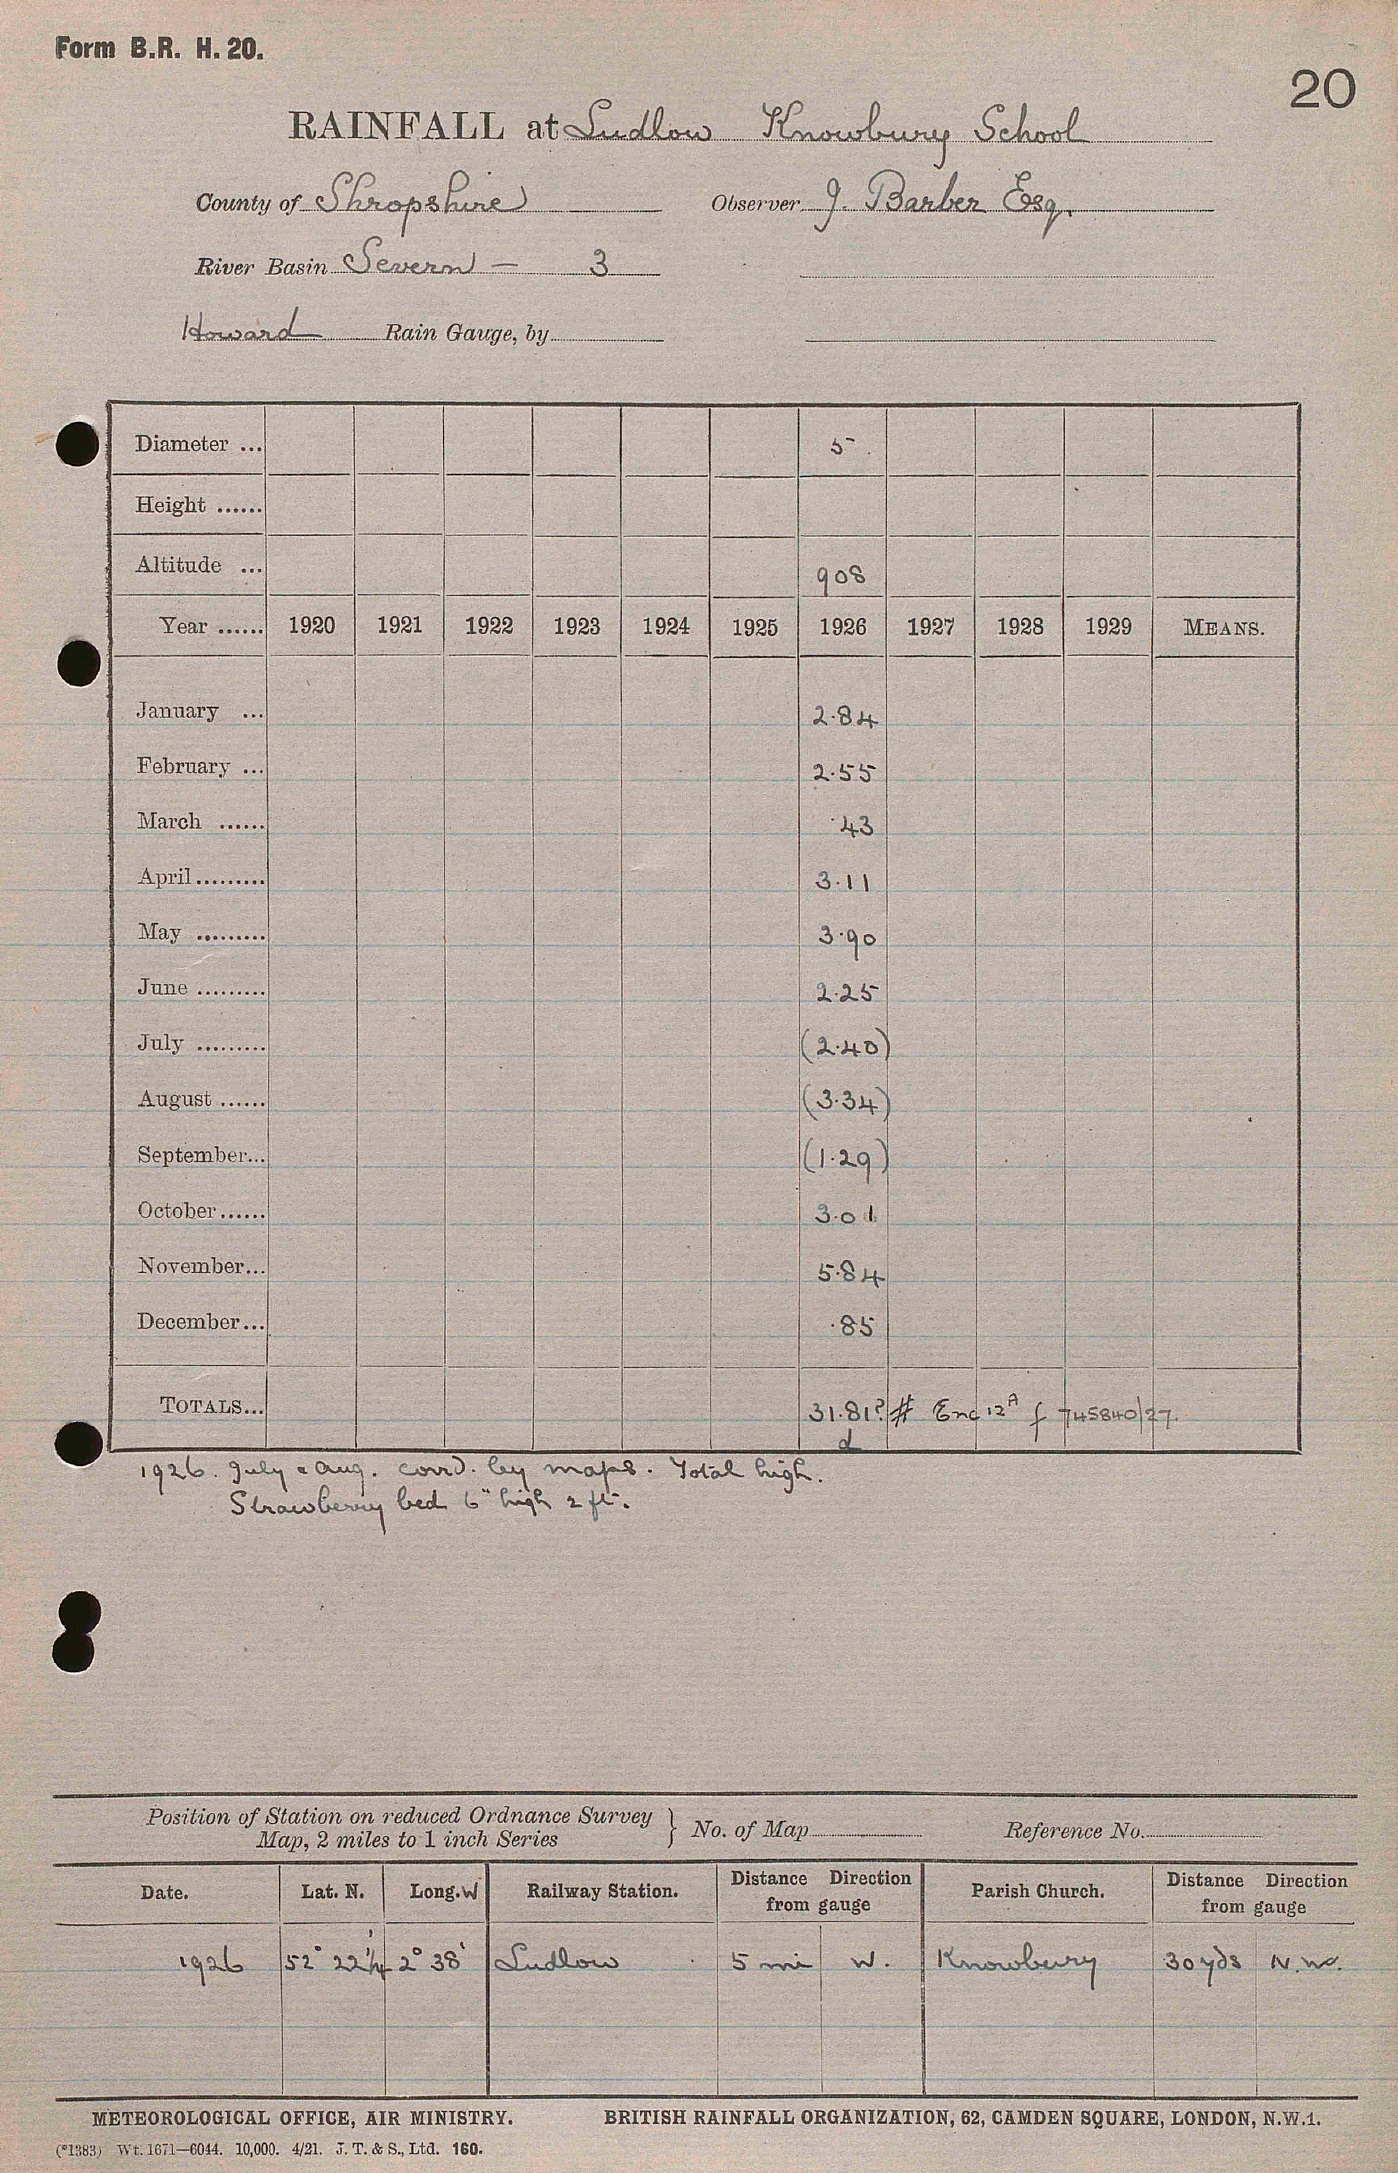 Form B.R. H. 20.
20
RAINFALL at Ludlow Knowbury School
County of Shropshire Observer J. Barber Esq.
River Basin Severn — 3
Howard Rain Gauge, by
Diameter ... 5
Height ......
Altitude ... 908
Year ...... 1920 1921 1922 1923 1924 1925 1926 1927 1928 1929 MEANS.
January ... 2.84
February ... 2.55
March ...... .43
April ......... 3.11
May ......... 3.90
June ......... 2.25
July ......... (2.40)
August ...... (3.34)
September... (1.29)
October ...... 3.01
November... 5.84
December... .85
TOTALS... 31.81? # Enc 12A f 745840/27.
d
1926. July & Aug. corrd. by maps. Total high.
Strawberry bed 6" high 2 ft.
Position of Station on reduced Ordnance Survey
Map, 2 miles to 1 inch Series } No. of Map Reference No.
Date. Lat. N. Long. W Railway Station. Distance Direction from gauge Parish Church. Distance Direction from gauge
1926 52° 22¼' 2° 38' Ludlow 5 mi W. Knowbury 30 yds N.W.
METEOROLOGICAL OFFICE, AIR MINISTRY. BRITISH RAINFALL ORGANIZATION, 62, CAMDEN SQUARE, LONDON, N.W.1.
(*1383) Wt. 1671—6044. 10,000. 4/21. J. T. & S., Ltd. 160.